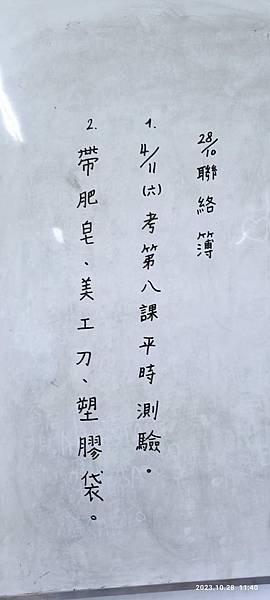 28/10聯絡簿
1. 4/11(六)考第八課平時測驗。
2. 帶肥皂、美工刀、塑膠袋。
2023.10.28 11:40